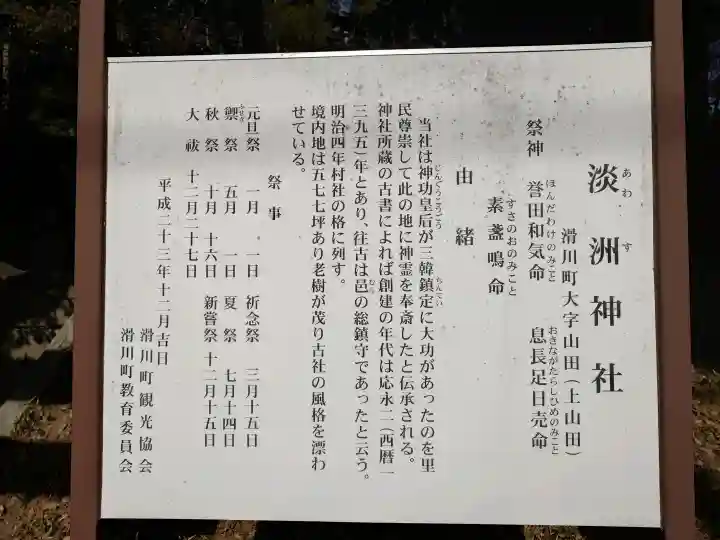 淡洲神社
あわ す
滑川町大字山田(上山田)
祭神 誉田和気命 息長足日売命
ほんだわけのみこと おきながたらしひめのみこと
素盞鳴命
すさのおのみこと
由緒
当社は神功皇后が三韓鎮定に大功があったのを里
じんぐうこうごう ちんてい
民尊崇して此の地に神霊を奉斎したと伝承される。
神社所蔵の古書によれば創建の年代は応永二(西暦一
三九五)年とあり、往古は邑の総鎮守であったと云う。
むら
明治四年村社の格に列す。
境内地は五七七坪あり老樹が茂り古社の風格を漂わ
せている。
祭事
元旦祭 一月 一日 祈念祭 三月十五日
禦祭 五月 一日 夏祭 七月十四日
ふせぎ
秋祭 十月 十六日 新嘗祭 十二月十五日
大祓 十二月二十七日
平成二十三年十二月吉日
滑川町観光協会
滑川町教育委員会